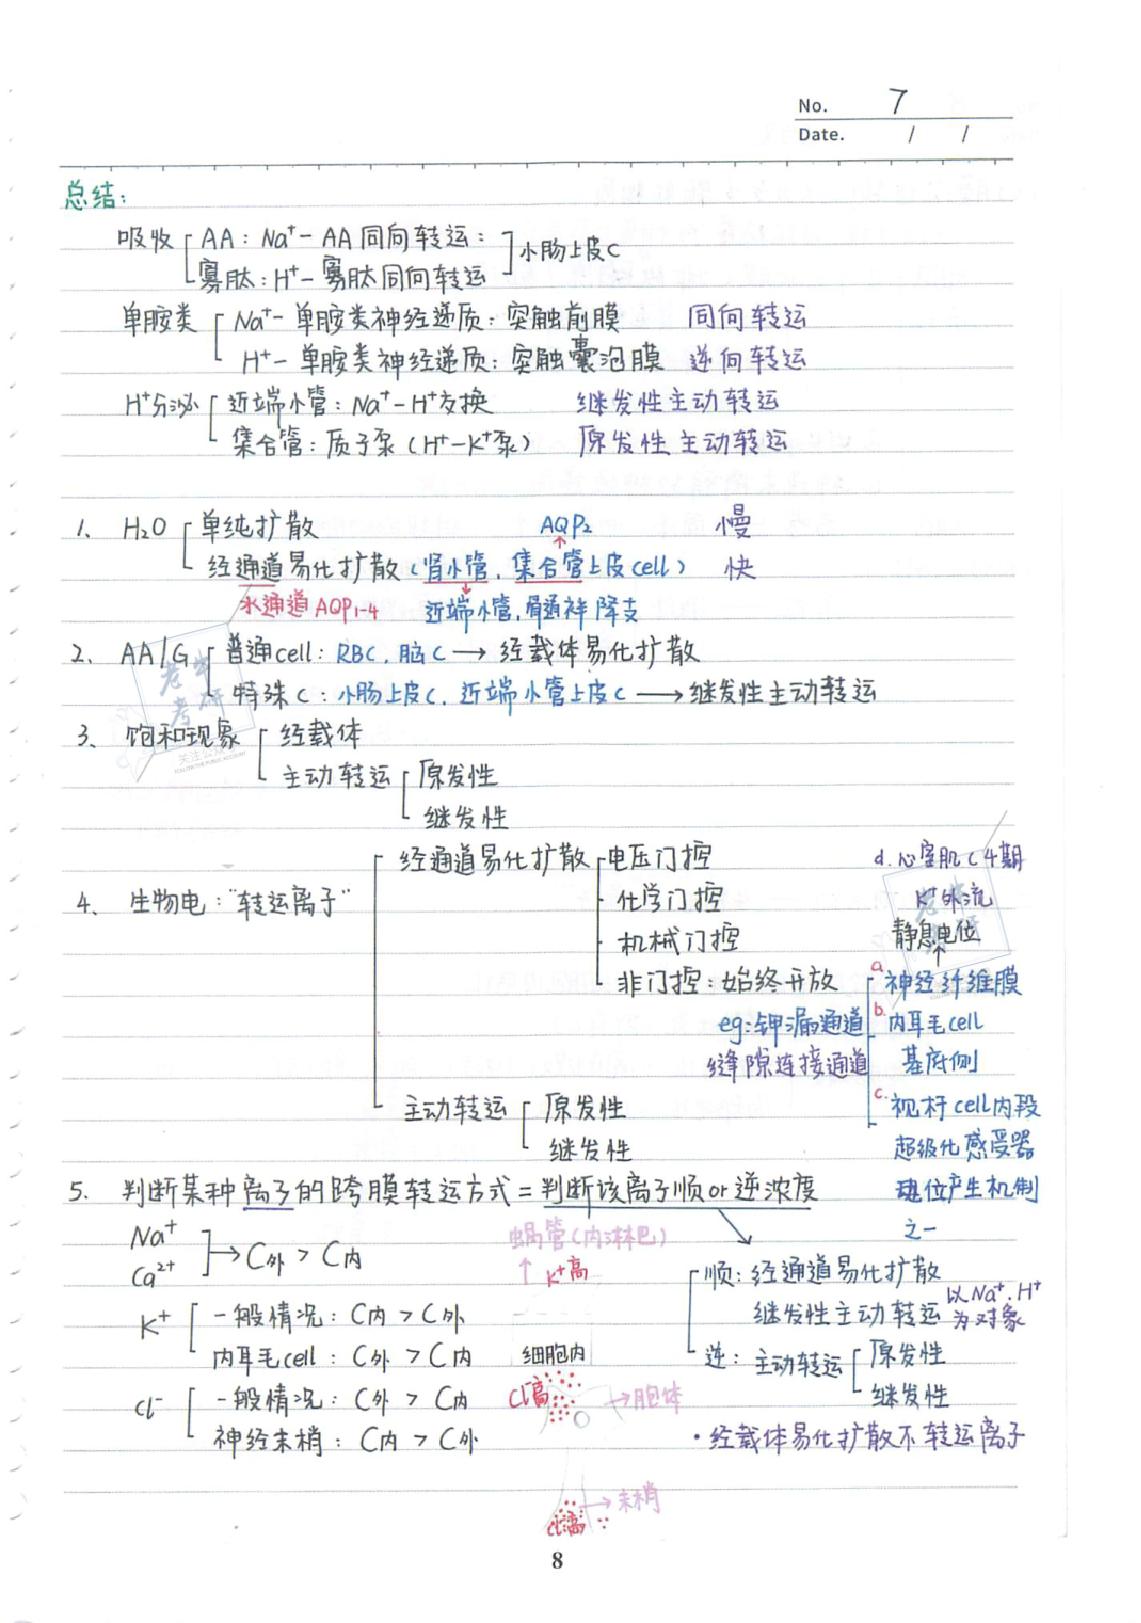 No. 7
Date. / /
总结:
吸收 AA: Na⁺- AA 同向转运: 小肠上皮C
寡肽: H⁺- 寡肽同向转运
单胺类 Na⁺- 单胺类神经递质: 突触前膜 同向转运
H⁺- 单胺类神经递质: 突触囊泡膜 逆向转运
H⁺分泌 近端小管: Na⁺-H⁺交换 继发性主动转运
集合管: 质子泵 (H⁺-K⁺泵) 原发性主动转运
1、 H₂O 单纯扩散 AQP₂ 慢
经通道易化扩散 (肾小管, 集合管上皮cell) 快
水通道AQP₁₋₄ 近端小管, 髓袢降支
2、 AA/G 普通cell: RBC, 脑C → 经载体易化扩散
特殊C: 小肠上皮C, 近端小管上皮C → 继发性主动转运
3、 饱和现象 经载体
主动转运 原发性
继发性
经通道易化扩散 电压门控 d. 心室肌C4期
4、 生物电: "转运离子" 化学门控 K⁺外流
机械门控 静息电位
非门控: 始终开放 a 神经纤维膜
eg: 钾漏通道 b. 内耳毛cell
缝隙连接通道 基底侧
主动转运 原发性 c. 视杆cell内段
继发性 超级化感受器
5. 判断某种离子的跨膜转运方式=判断该离子顺or逆浓度 电位产生机制
之一
Na⁺ → C外 > C内 蜗管(内淋巴)
Ca²⁺ ↑ K⁺高 顺: 经通道易化扩散
K⁺ 一般情况: C内 > C外 继发性主动转运 以Na⁺, H⁺为对象
内耳毛cell: C外 > C内 细胞内 逆: 主动转运 原发性
Cl⁻ 一般情况: C外 > C内 Cl高 → 胞体 继发性
神经末梢: C内 > C外 ·经载体易化扩散不转运离子
→ 末梢
Cl高
8
老牛考研
关注公众号
老牛考研